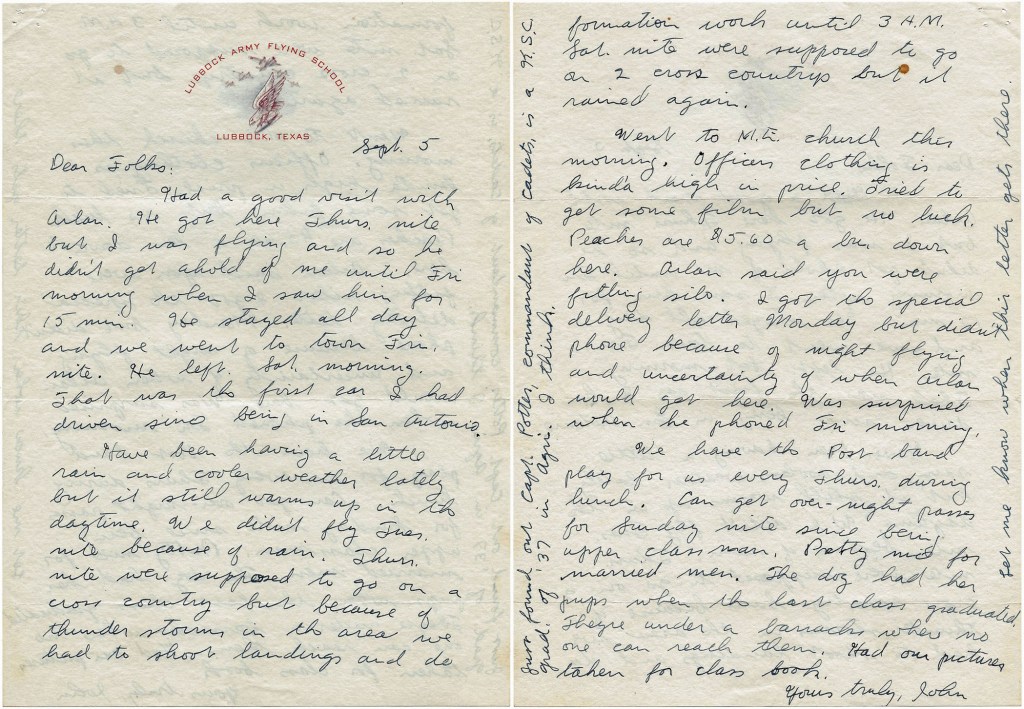 LUBBOCK ARMY FLYING SCHOOL
LUBBOCK, TEXAS
Sept. 5
Dear Folks:
Had a good visit with
Arlan. He got here Thurs. nite
but I was flying and so he
didn't get ahold of me until Fri
morning when I saw him for
15 min. He stayed all day
and we went to town Fri.
nite. He left Sat. morning.
That was the first car I had
driven since being in San Antonio.
Have been having a little
rain and cooler weather lately
but it still warms up in the
daytime. We didn't fly Tues.
nite because of rain. Thurs.
nite were supposed to go on a
cross country but because of
thunder storms in the area we
had to shoot landings and do
formation work until 3 A.M.
Sat. nite were supposed to go
on 2 cross countrys but it
rained again.
Went to M.E. church this
morning. Officers clothing is
kind'a high in price. Tried to
get some film but no luck.
Peaches are $5.60 a bu. down
here. Arlan said you were
filling silo. I got the special
delivery letter Monday but didn't
phone because of night flying
and uncertainty of when Arlan
would get here. Was surprised
when he phoned Fri morning.
We have the Post band
play for us every Thurs. during
lunch. Can get over-night passes
for Sunday nite since being
upper classman. Pretty nice for
married men. The dog had her
pups when the last class graduated.
Theyre under a barracks where no
one can reach them. Had our pictures
taken for class book.
Yours truly, John
Just found out Capt. Potter, commandant of cadets, is a N.S.C.
grad. of '37 in Agri. I think.
Let me know when this letter gets there.